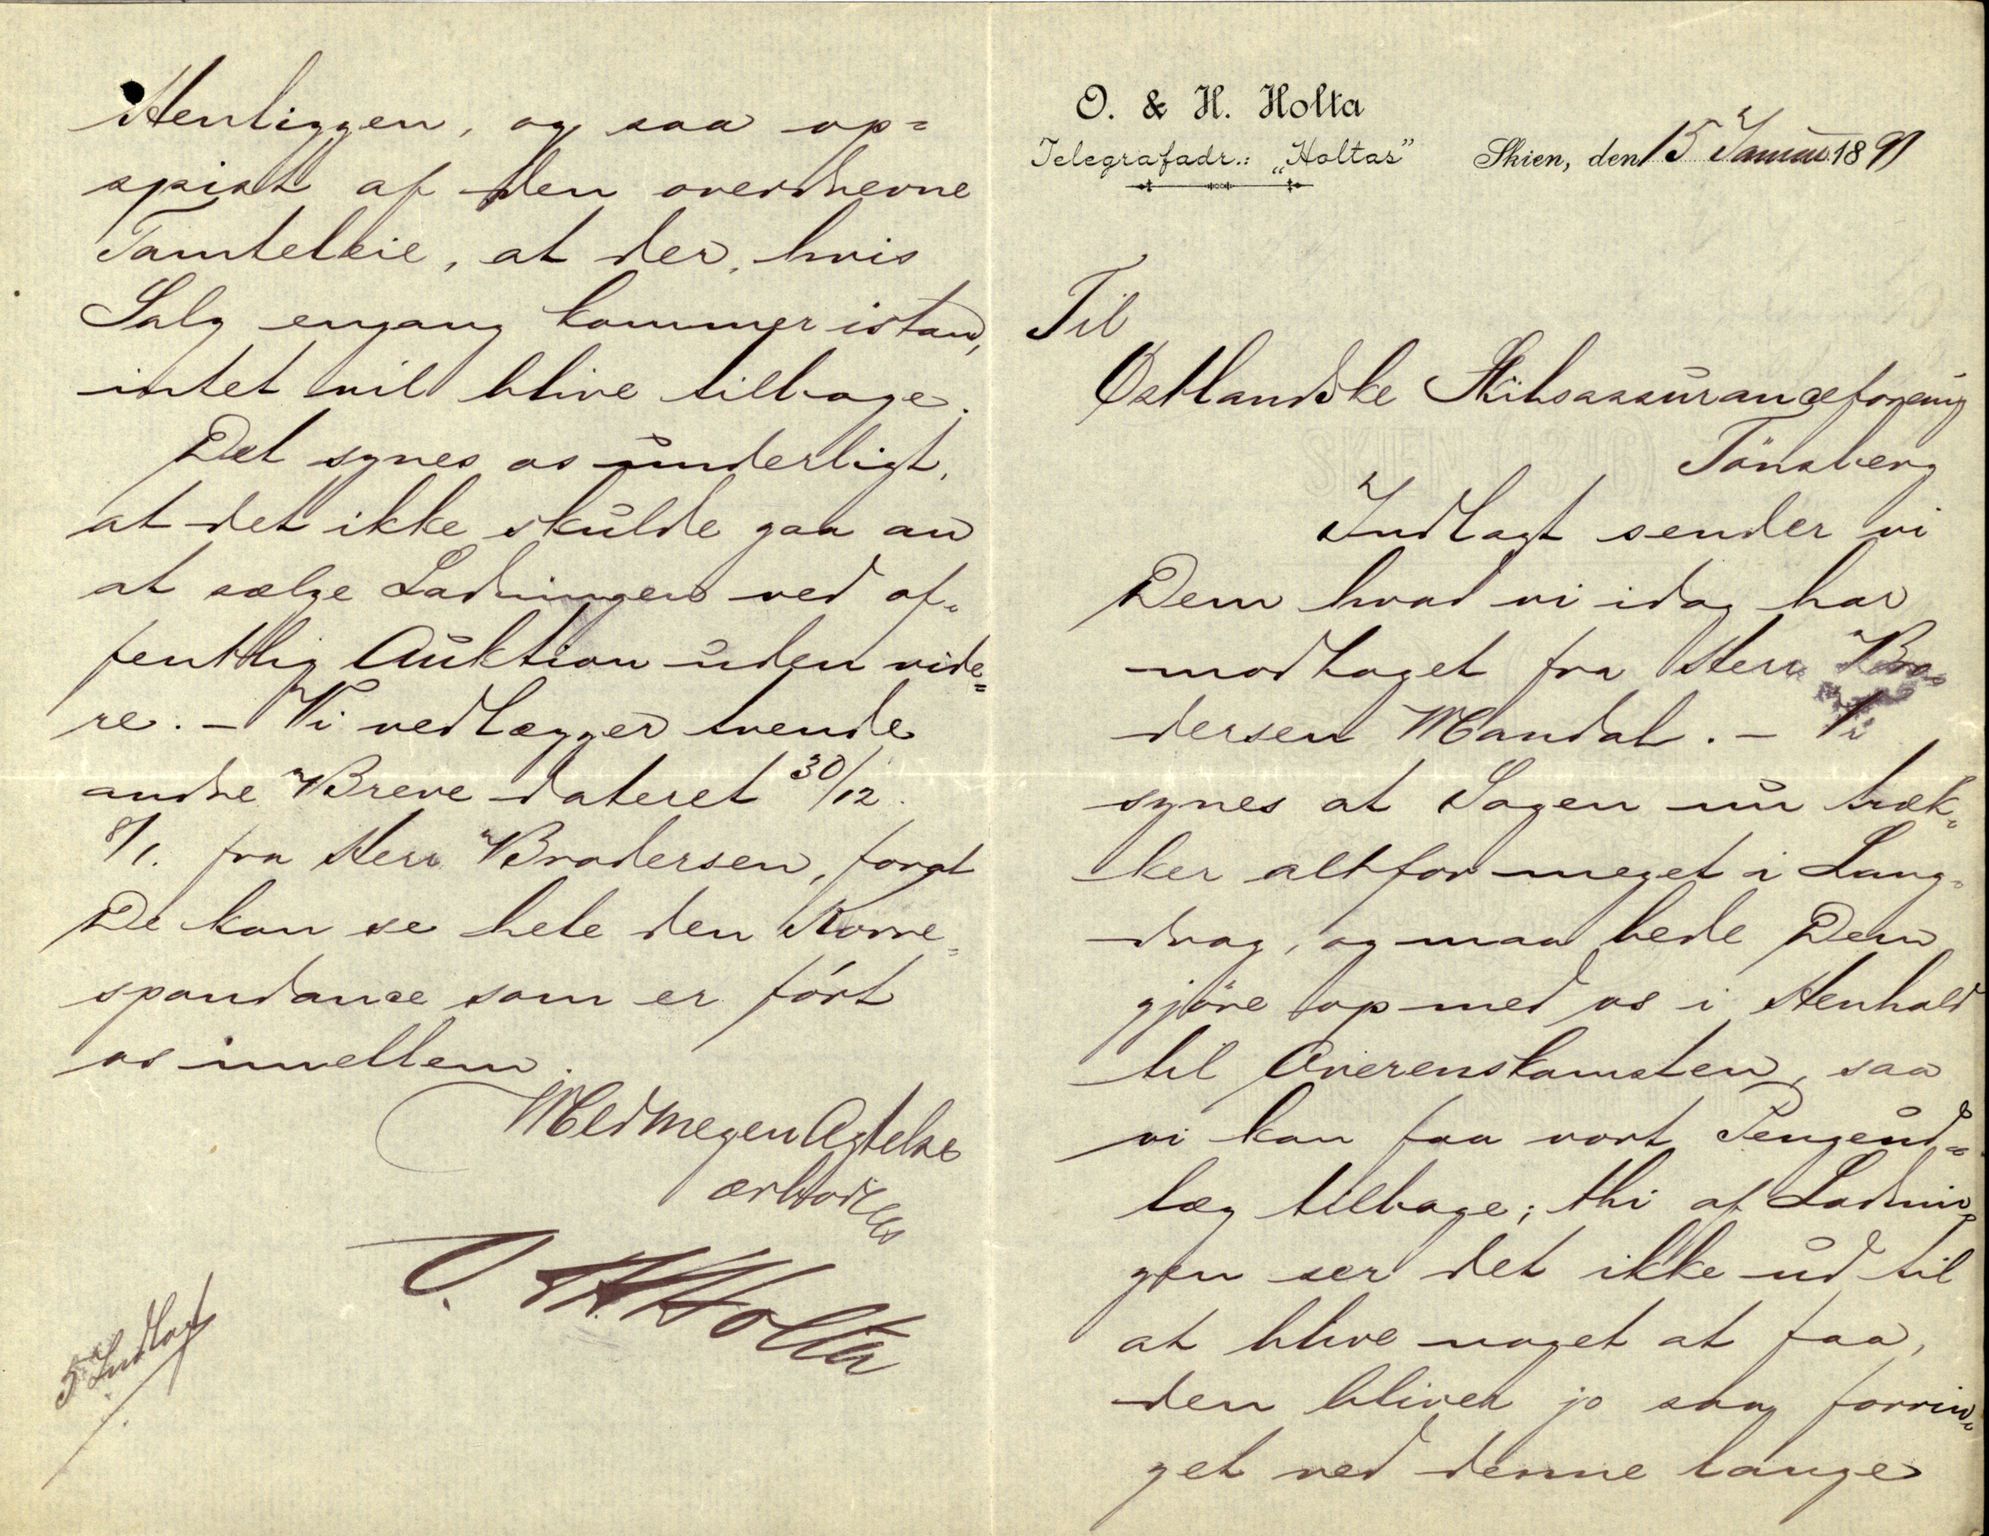 O. & H. Holta
Telegrafadr.: „Holtas"
Skien, den 15 Januar 1891
Til
Østlandske Skibsassuranceforening
Tönsberg
Indlagt sender vi
Dem hvad vi idag har
modtaget fra Herr Bro-
dersen Mandal. – Vi
synes at Sagen nu træk-
ker altfor meget i Lang-
drag, og maa bede Dem
gjöre op med os i Henhold
til Overenskomsten, saa
vi kan faa vort Pengeud-
læg tilbage; thi af Ladnin-
gen ser det ikke ud til
at blive noget at faa,
den bliver jo saa forrin-
get ved denne lange
Henliggen, og saa op-
spist af den overdrevne
Tomteleie, at der, hvis
Salg engang kommer istand,
intet vil blive tilbage.
Det synes os underligt,
at det ikke skulde gaa an
at sælge Ladningen ved of-
fentlig Auktion uden vide-
re. – Vi vedlægger tvende
andre Breve dateret 30/12.
8/1. fra Herr Brodersen, forat
De kan se hele den Korre-
spondance som er fört
os imellem.
Med megen Agtelse
ærbödigst
O. & H. Holta
5 Indlag